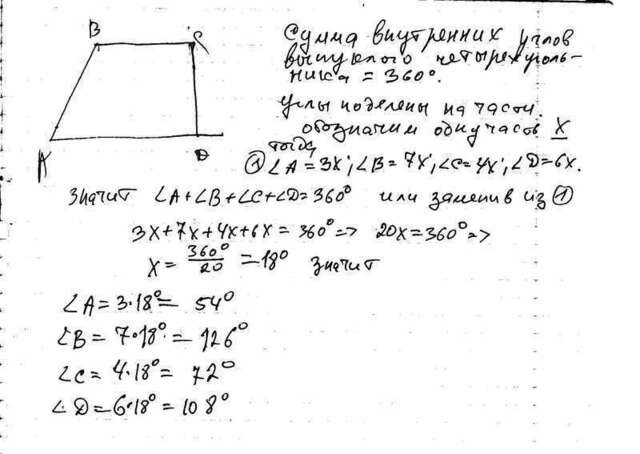 B C
A D
Сумма внутренних углов
выпуклого четырехуголь-
ника = 360°.
Углы поделены на части.
обозначим одну часть X
тогда
① ∠A = 3X; ∠B = 7X; ∠C = 4X; ∠D = 6X.
Значит ∠A+∠B+∠C+∠D = 360° или заменив из ①
3X+7X+4X+6X = 360° => 20X = 360° =>
X = 360°/20 = 18° значит
∠A = 3·18° = 54°
∠B = 7·18° = 126°
∠C = 4·18° = 72°
∠D = 6·18° = 108°